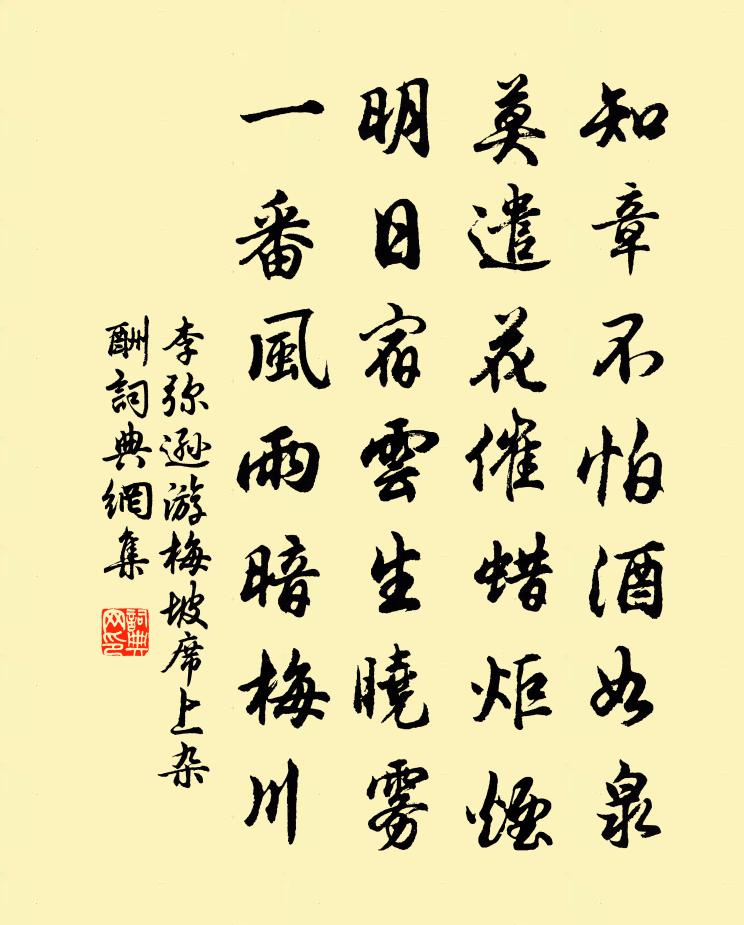 知章不怕酒如泉
莫遣花催蜡炬煙
明日宿雲生曉霧
一番風雨暗梅川
李弥遜游梅坡席上杂
酬詞典網集
詞典
网印